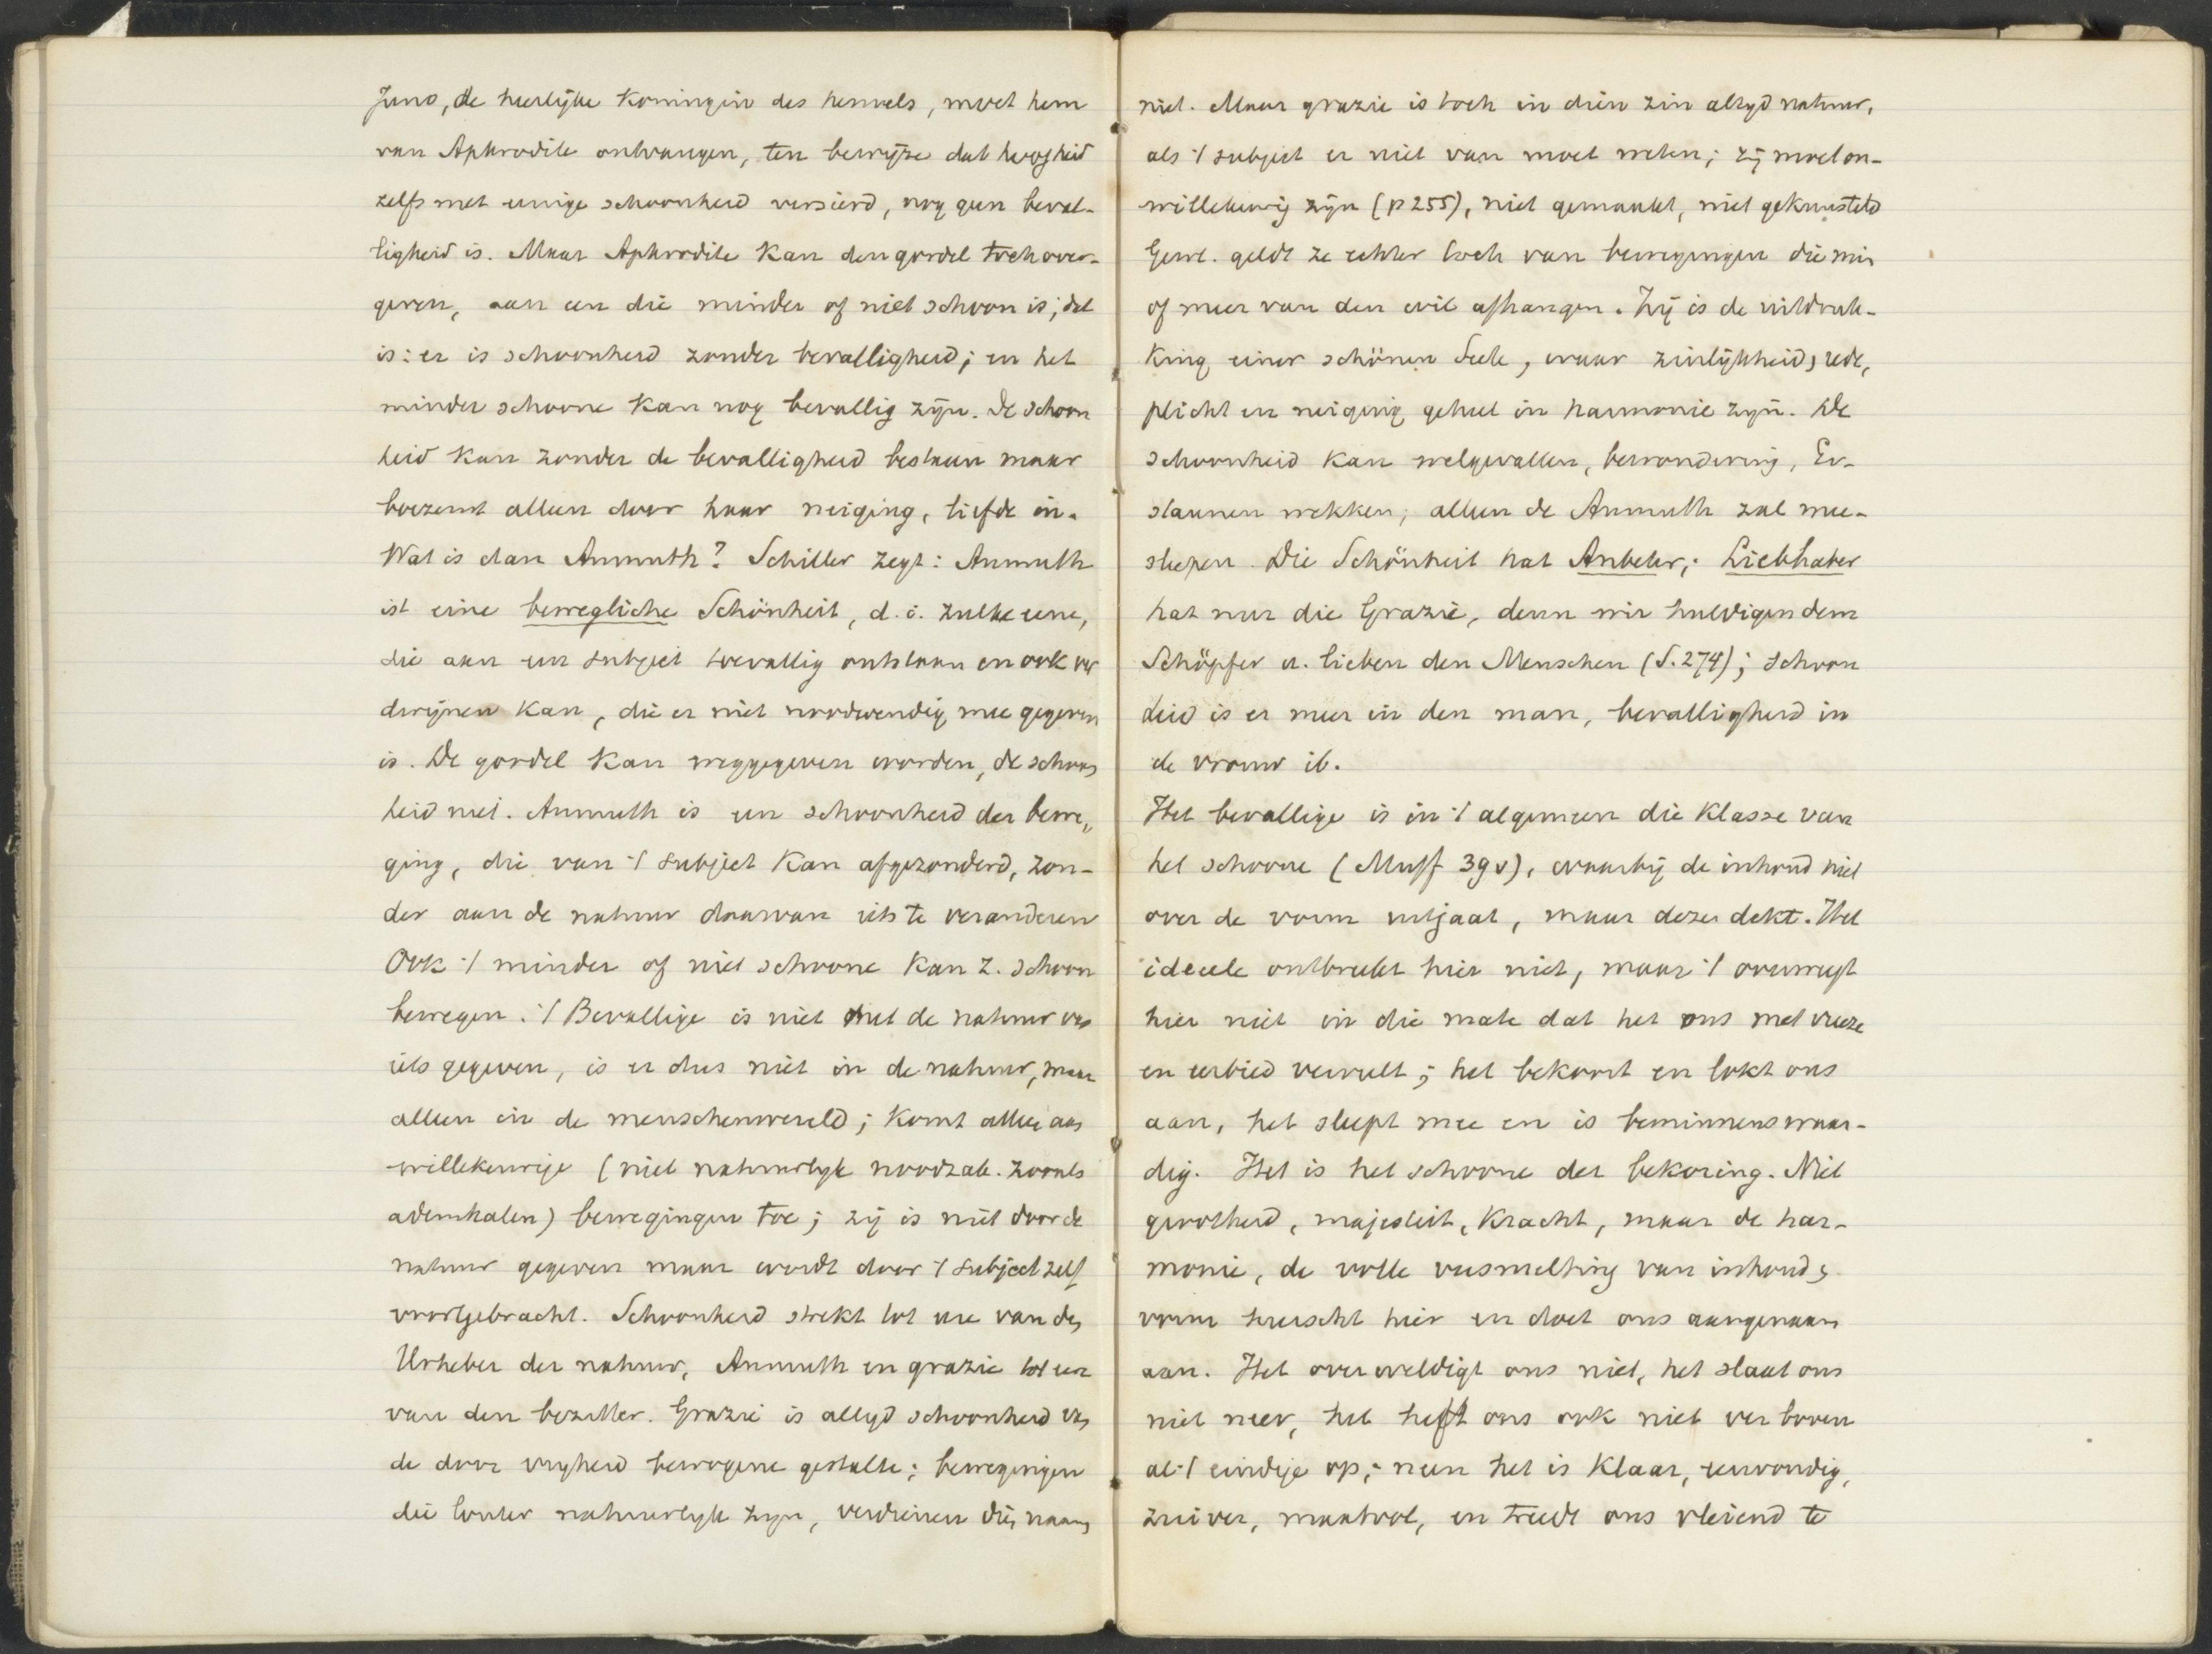 Juno, de heerlijke Koningin des hemels, moet hem
van Aphrodite ontvangen, ten bewijze dat hoogheid
zelfs met eenige schoonheid versierd, nog geen beval-
ligheid is. Maar Aphrodite kan den gordel toch over-
geven, aan een die minder of niet schoon is; dat
is: er is schoonheid zonder bevalligheid; en het
minder schoone kan nog bevallig zijn. De schoon
heid kan zonder de bevalligheid bestaan maar
boezemt alleen door haar neiging, liefde in.
Wat is dan Anmuth? Schiller zegt: Anmuth
ist eine bewegliche Schönheit, d. i. zulke eene,
die aan een subject toevallig ontstaan en ook ver
dwijnen kan, die er niet noodwendig mee gegeven
is. De gordel kan weggegeven worden, de schoon
heid niet. Anmuth is een schoonheid der bewe„
ging, die van 't subject kan afgezonderd, zon-
der aan de natuur daarvan iets te veranderen
Ook 't minder of niet schoone kan z. schoon
bewegen. 't Bevallige is niet met de natuur van
iets gegeven, is er dus niet in de natuur, maar
alleen in de menschenwereld; komt alleen aan
willekeurige (niet natuurlyk noodzak. zooals
ademhalen) bewegingen toe; zij is niet door de
natuur gegeven maar wordt door 't subject zelf
voortgebracht. Schoonheid strekt tot eere van den
Urheber der natuur, Anmuth en grazie tot eer
van den bezitter. Grazie is altyd schoonheid van
de door vryheid bewogene gestalte; bewegingen
die louter natuurlyk zyn, verdienen dien naam
niet. Maar grazie is toch in dien zin altyd natuur,
als 't subject er niet van moet weten; zij moet on-
willekeurig zijn (p 255), niet gemaakt, niet gekunsteld
Gewl. geldt ze echter toch van bewegingen die min
of meer van den wil afhangen. Zij is de uitdruk-
king einer schönen Seele, waar zinlijkheid, rede,
plicht en neiging geheel in harmonie zyn. De
schoonheid kan welgevallen, bewondering, Er-
staunen wekken; alleen de Anmuth zal mee-
sleepen. Die Schönheit hat Anbeter; Liebhaber
hat nur die Grazie, denn wir huldigen dem
Schöpfer u. lieben den Menschen (S. 274); schoon
heid is er meer in den man, bevalligheid in
de vrouw ib.
Het bevallige is in 't algemeen die klasse van
het schoone (Muff 39 v), waarbij de inhoud niet
over de vorm uitgaat, maar dezen dekt. Het
ideeele ontbreekt hier niet, maar 't overweegt
hier niet in die mate dat het ons met vreeze
en eerbied vervult; het bekoort en lokt ons
aan, het sleept mee en is beminnenswaar-
dig. Het is het schoone der bekoring. Niet
grootheid, majesteit, kracht, maar de har-
monie, de volle versmelting van inhoud &
vorm heerscht hier en doet ons aangenaam
aan. Het overweldigt ons niet, het slaat ons
niet neer, het heft ons ook niet ver boven
al 't eindige op; neen het is klaar, eenvoudig,
zuiver, maatvol, en treedt ons vleiend te